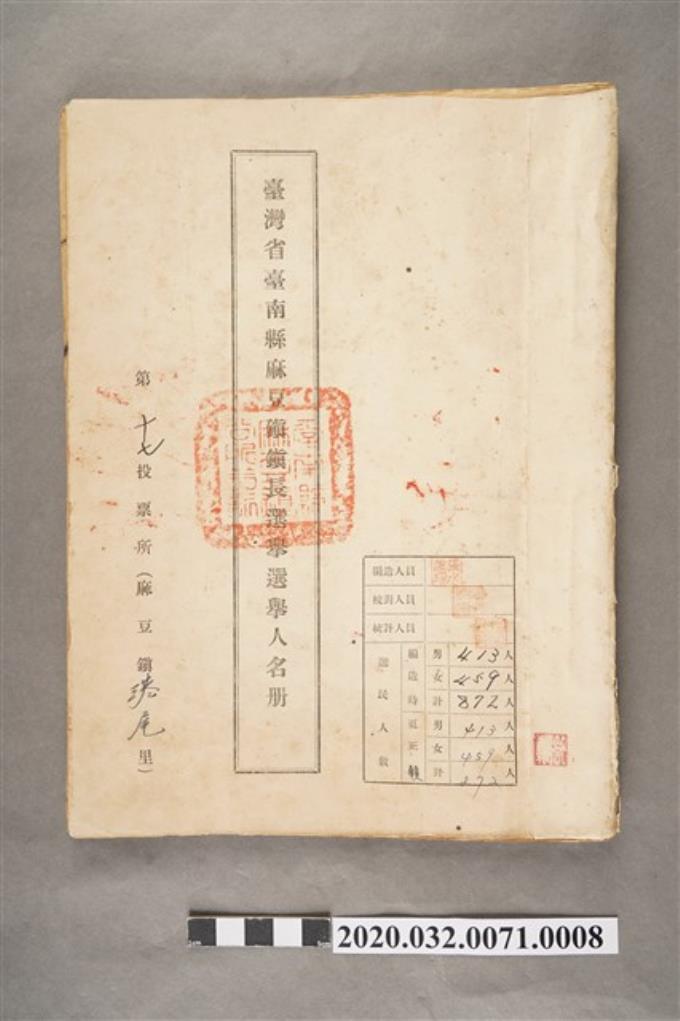 臺灣省臺南縣麻豆鎮鎮長選舉選舉人名册
第十七投票所(麻豆鎮港尾里)
編造人員
校對人員
統計人員
選民人數
編造時
男 413人
女 459人
計 872人
更正後
男 413人
女 459人
計 872人
2020.032.0071.0008